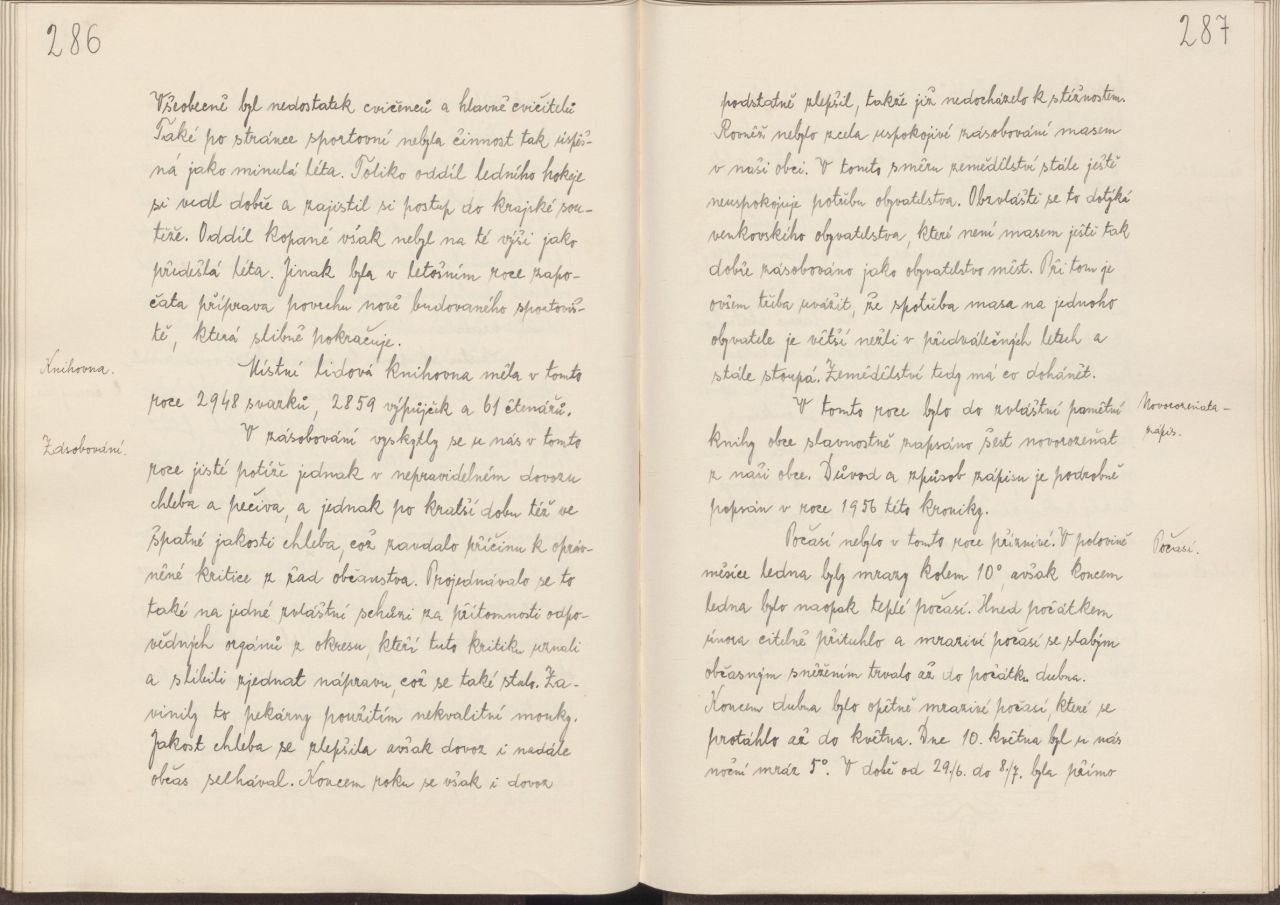 286
Všeobecně byl nedostatek cvičenců a hlavně cvičitelů
Také po stránce sportovní nebyla činnost tak úspěš-
ná jako minulá léta. Toliko oddíl ledního hokeje
si vedl dobře a zajistil si postup do krajské sou-
těže. Oddíl kopané však nebyl na té výši jako
předešlá léta. Jinak byla v letošním roce zapo-
čata příprava povrchu nově budovaného sportoviš-
tě, která slibně pokračuje.
Knihovna.
Místní lidová knihovna měla v tomto
roce 2948 svazků, 2859 výpůjček a 61 čtenářů.
Zásobování.
V zásobování vyskytly se u nás v tomto
roce jisté potíže jednak v nepravidelném dovozu
chleba a pečiva, a jednak po kratší dobu též ve
špatné jakosti chleba, což zavdalo příčinu k opráv-
něné kritice z řad občanstva. Projednávalo se to
také na jedné zvláštní schůzi za přítomnosti odpo-
vědných orgánů z okresu, kteří tuto kritiku uznali
a slíbili zjednat nápravu, což se také stalo. Za-
vinily to pekárny použitím nekvalitní mouky.
Jakost chleba se zlepšila avšak dovoz i nadále
občas selhával. Koncem roku se však i dovoz
287
podstatně zlepšil, takže již nedocházelo k stížnostem.
Rovněž nebylo zcela uspokojivé zásobování masem
v naší obci. V tomto směru zemědělství stále ještě
neuspokojuje potřebu obyvatelstva. Obzvláště se to dotýká
venkovského obyvatelstva, které není masem ještě tak
dobře zásobováno jako obyvatelstvo měst. Při tom je
ovšem třeba uvážit, že spotřeba masa na jednoho
obyvatele je větší nežli v předválečných letech a
stále stoupá. Zemědělství tedy má co dohánět.
Novorozeňata-
zápis.
V tomto roce bylo do zvláštní pamětní
knihy obce slavnostně zapsáno šest novorozeňat
z naší obce. Důvod a způsob zápisu je podrobně
popsán v roce 1956 této kroniky.
Počasí.
Počasí nebylo v tomto roce příznivé. V polovině
měsíce ledna byly mrazy kolem 10°, avšak koncem
ledna bylo naopak teplé počasí. Hned počátkem
února citelně přituhlo a mrazivé počasí se slabým
občasným sněžením trvalo až do počátku dubna.
Koncem dubna bylo opětně mrazivé počasí, které se
protáhlo až do května. Dne 10. května byl u nás
noční mráz 5°. V době od 29./6. do 8./7. byla přímo